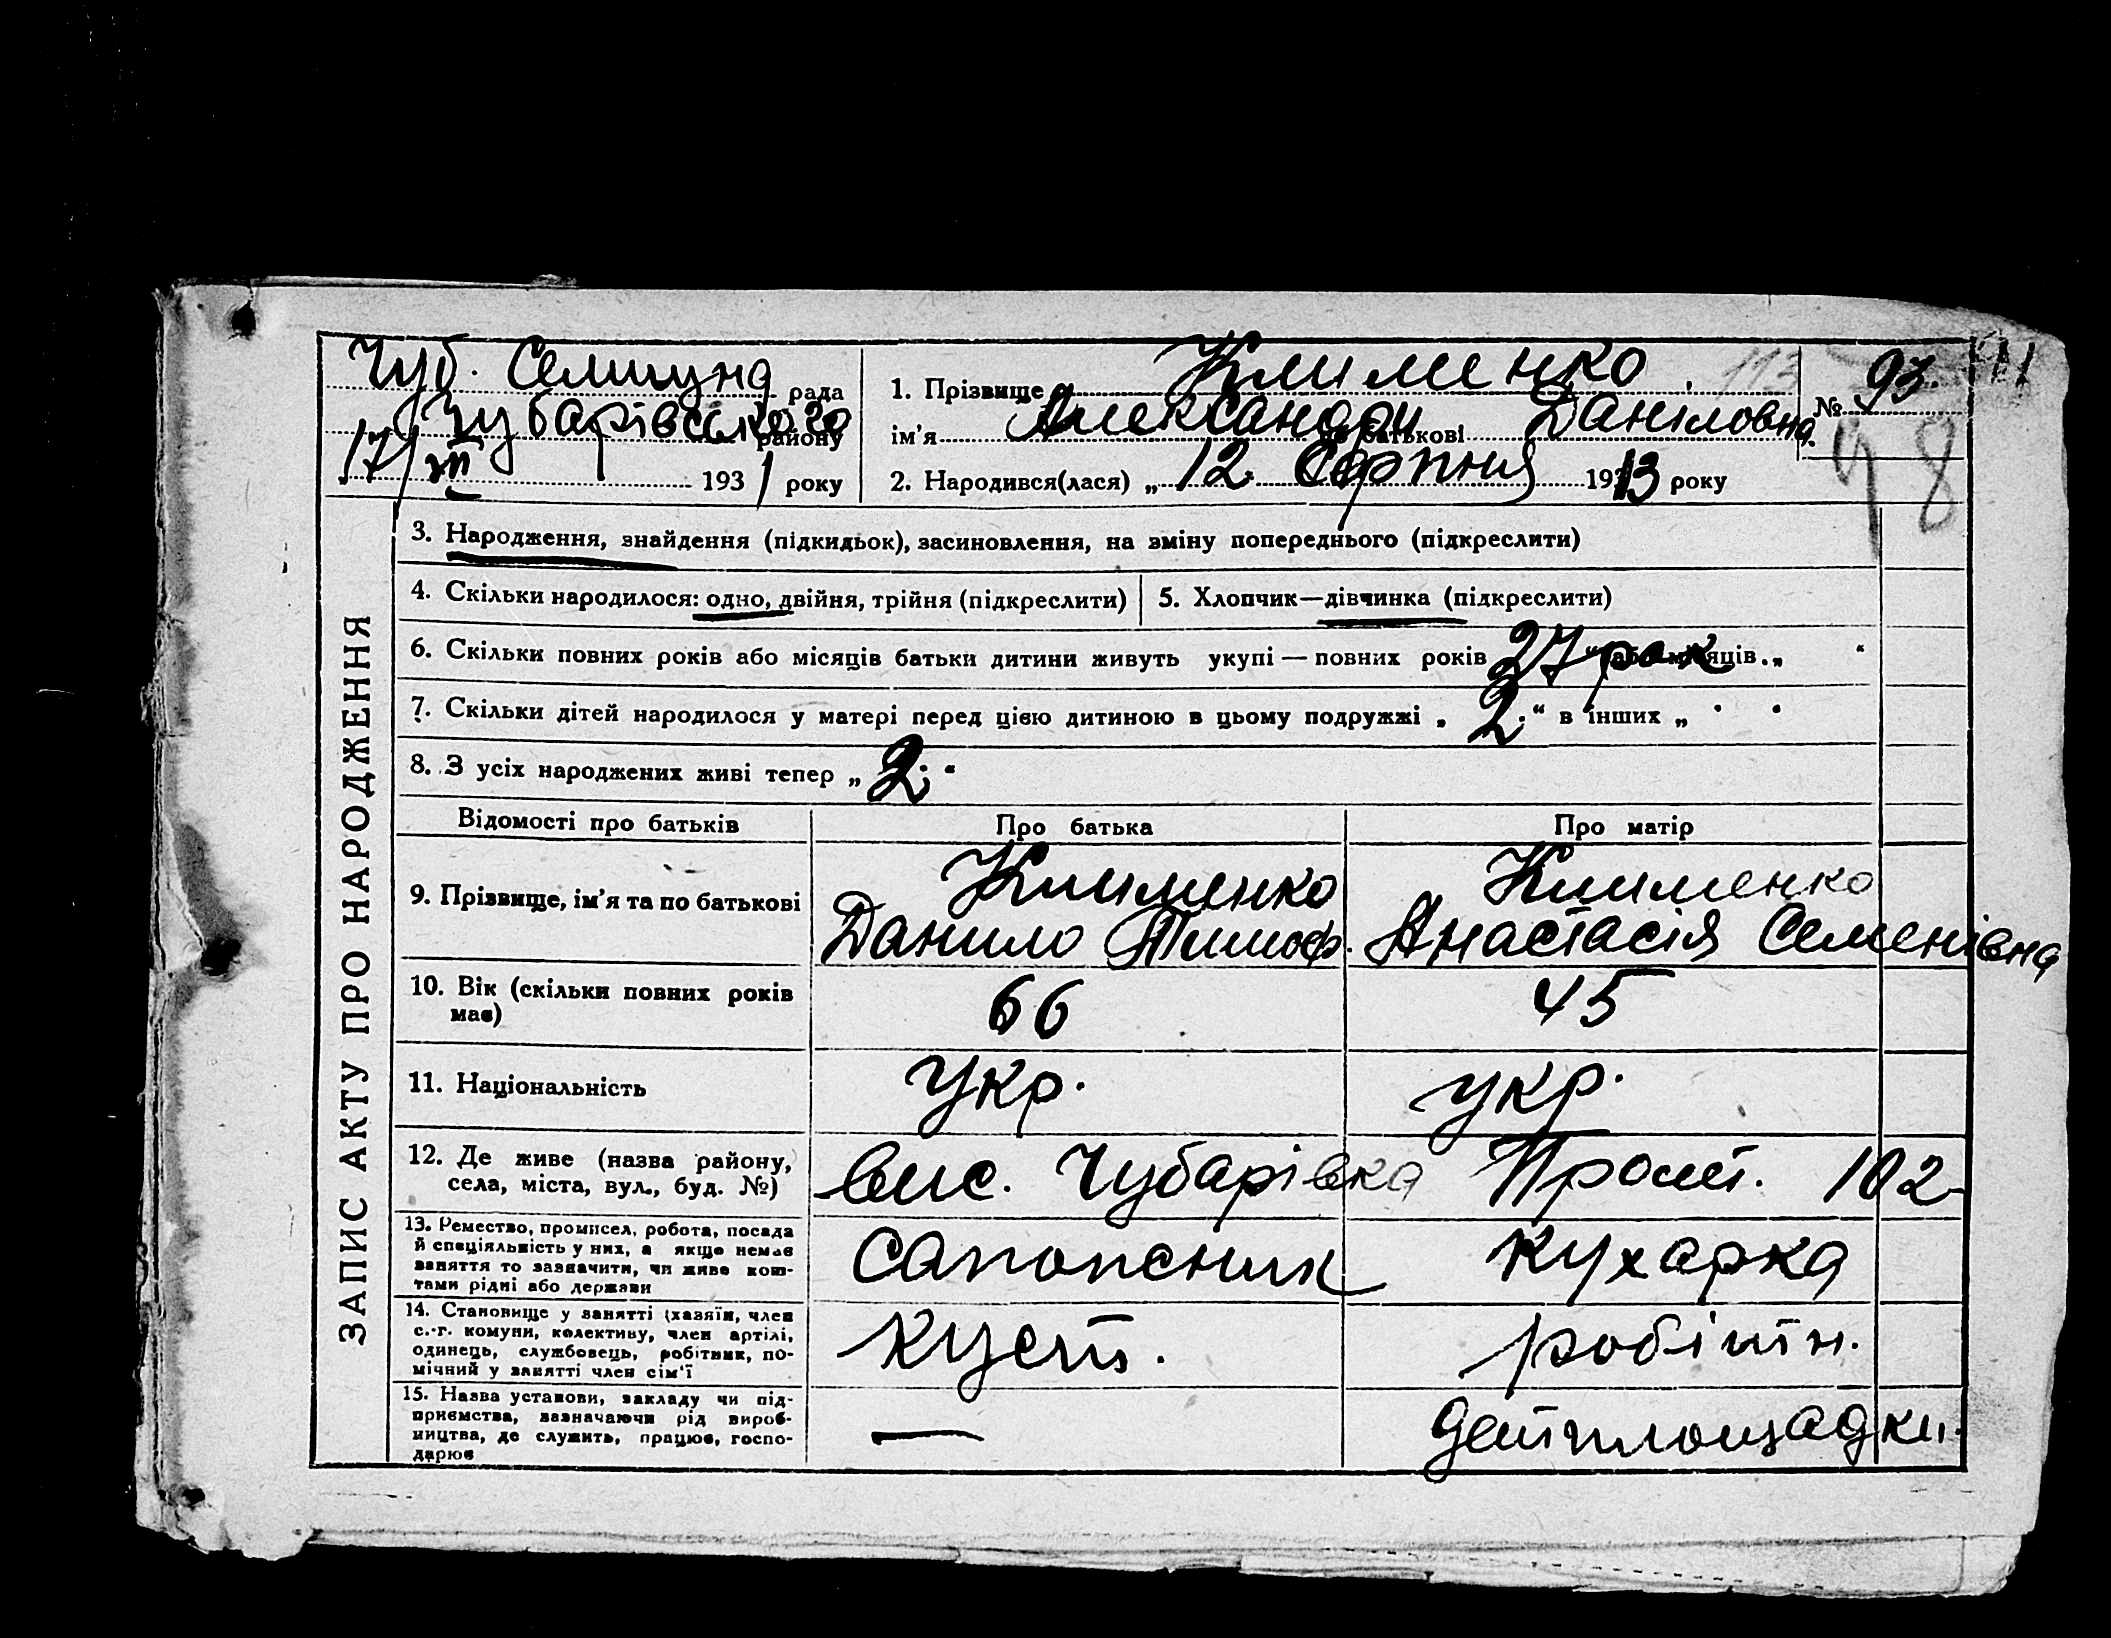 Чуб. Селищна рада
Чубарівського району
17/VII 1931 року
1. Прізвище Клименко
113
ім'я Александра по батькові Даніловна
№ 93.
98
2. Народився(лася) „ 12. Серпня 1913 року
ЗАПИС АКТУ ПРО НАРОДЖЕННЯ
3. Народження, знайдення (підкидьок), засиновлення, на зміну попереднього (підкреслити)
4. Скільки народилося: одно, двійня, трійня (підкреслити)
5. Хлопчик—дівчинка (підкреслити)
6. Скільки повних років або місяців батьки дитини живуть укупі — повних років 27 рок “ або місяців „ “
7. Скільки дітей народилося у матері перед цією дитиною в цьому подружжі „ 2. “ в інших „ “
8. З усіх народжених живі тепер „ 2; “
Відомості про батьків
Про батька
Про матір
9. Прізвище, ім'я та по батькові
Клименко
Данило Тимоф.
Клименко
Анастасія Семенівна
10. Вік (скільки повних років має)
66
45
11. Національність
укр.
укр.
12. Де живе (назва району,
села, міста, вул., буд. №)
вис. Чубарівка Пролет. 102
13. Ремество, промисел, робота, посада
й спеціяльність у них, а якщо немає
заняття то зазначити, чи живе кош-
тами рідні або держави
сапопсник
кухарка
14. Становище у занятті (хазяїн, член
с.-г. комуни, колективу, член артілі,
одинець, службовець, робітник, по-
мічний у занятті член сім'ї
куст.
робітн.
15. Назва установи, закладу чи під-
приємства, зазначаючи рід вироб-
ництва, де служить, працює, госпо-
дарює
—
детплощадки.